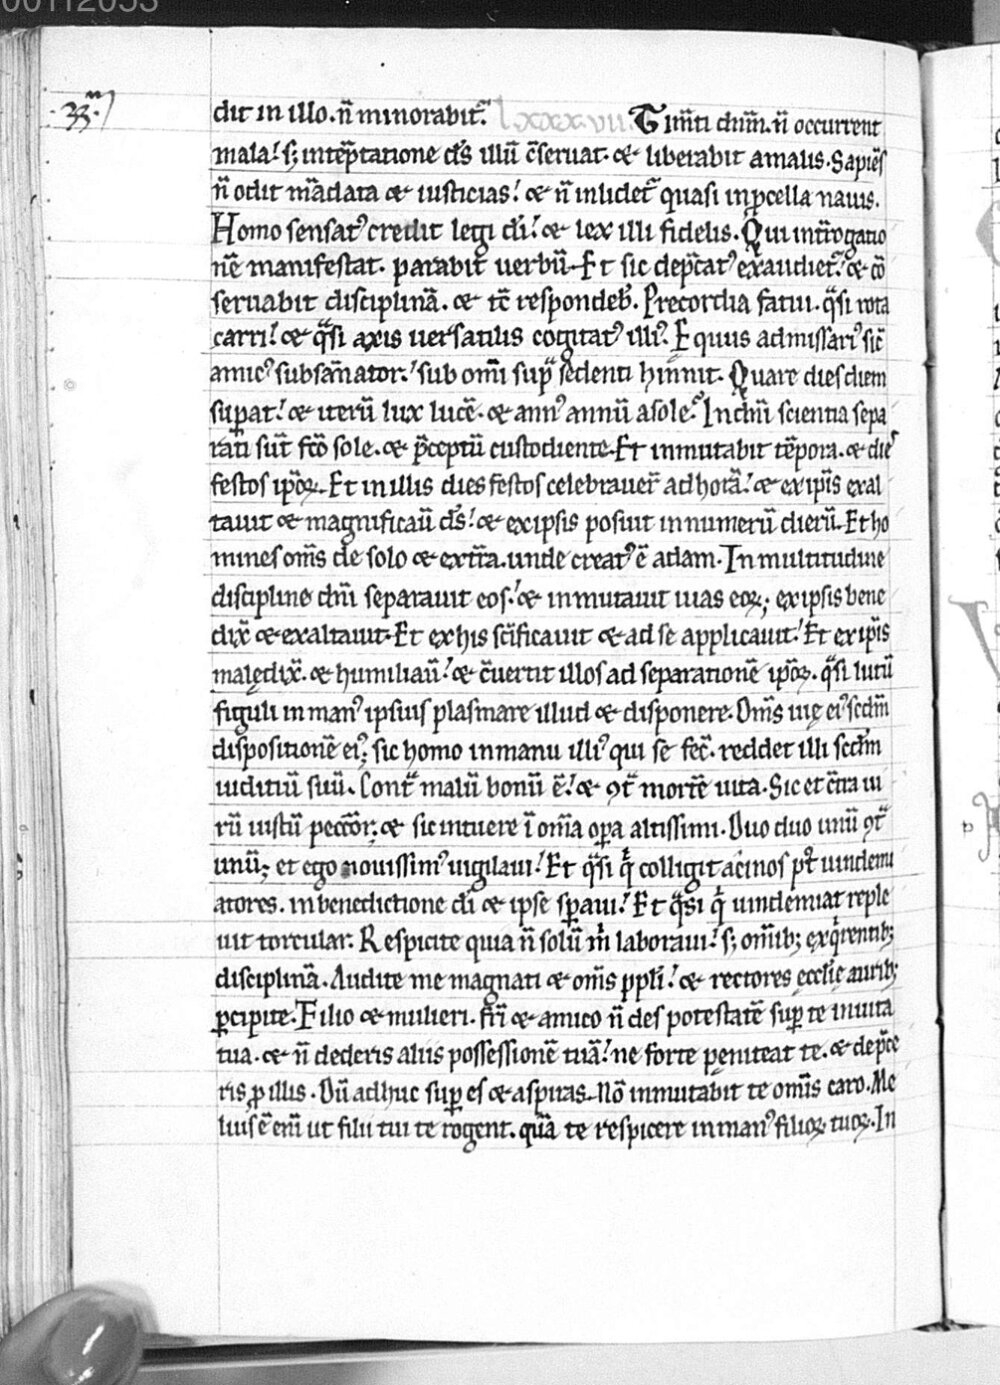 00112053
33m
dit in illo. n̄ minorabit̃. lxxxvii. Tim̄ti dn̄m. n̄ occurrent
mala! s; intēp̃tatione d̄s illū c̄seruat. & liberabit amalis. Sapiēs
n̄ odit mādata & iusticias! & n̄ inlidet̃ quasi inp̱cella nauis.
Homo sensatꝰ credit legi dī! & lex illi fidelis. Qui int̃rogatio
nē manifestat. parabit uerbū. Et sic dep̄catꝰ exaudiet̃! & cō
seruabit disciplinā. & tc̄ respondeb̃. Precordia fatui. q̃si rota
carri! & q̃si axis uersatilis cogitatꝰ illiꝰ. Equus admissariꝰ sic̄
amicꝰ subsānator! sub om̄i sup̃ sedenti hinnit. Quare dies diem
sup̱at! & iterū lux lucē. & annꝰ annū asole. In dn̄i scientia sepa
rati sūt fc̄o sole. & p̄ceptū custodiente. Et inmutabit tēpora. & dies
festos ip̄oꝝ. Et in illis dies festos celebrauer̃ ad horā! & exip̄is exal
tauit & magnificau̅ d̄s! & exipsis posuit innumerū dierū. Et ho
mines om̄s de solo & ext̃ra. unde creatꝰ ē adam. In multitudine
discipline dn̄i separauit eos! & inmutauit uias eoꝝ; exipsis bene
dix̄ & exaltauit. Et ex his sc̄ificauit & ad se applicauit! Et exip̄is
malędix̄. & humiliau̅! & c̄uertit illos ad separationē ip̄oꝝ. q̃si lutū
figuli in manꝰ ipsius plasmare illud & disponere. Om̄s uię eiꝰ scdm̄
dispositionē eiꝰ; sic homo inmanu illiꝰ qui se fec̄. reddet illi scdm̄
iuditiū suū. Cont̃ malū bonū ē! & ꝯt̃ mortē uita. Sic et c̄tra ui
rū iustū pecc̄or; & sic intuere ī om̄ia op̱a altissimi. Duo duo unū ꝯt̃
unū; et ego nouissimꝰ uigilaui! Et q̃si q̇ colligit acinos pꝰt uindemi
atores. inbenedictione dī & ipse sp̱aui! Et q̃si q̇ uindemiat reple
uit torcular. Respicite quia n̄ solū m̊ laboraui! s; om̄ib; exq̇rentib;
disciplinā. Audite me magnati & om̄s pp̱li! & rectores eccl̄ię aurib;
p̱cipite. Filio & mulieri. fr̄i & amico n̄ des potestatē sup̱ te inuita
tua. & n̄ dederis aliis possessionē tuā! ne forte pęniteat te. & dep̄ce
ris ꝓ illis. Dū adhuc sup̱ es & aspiras. Nō inmutabit te omīs caro. Me
lius ē em̄ ut filii tui te rogent. quā te respicere in manꝰ filioꝝ tuoꝝ. In